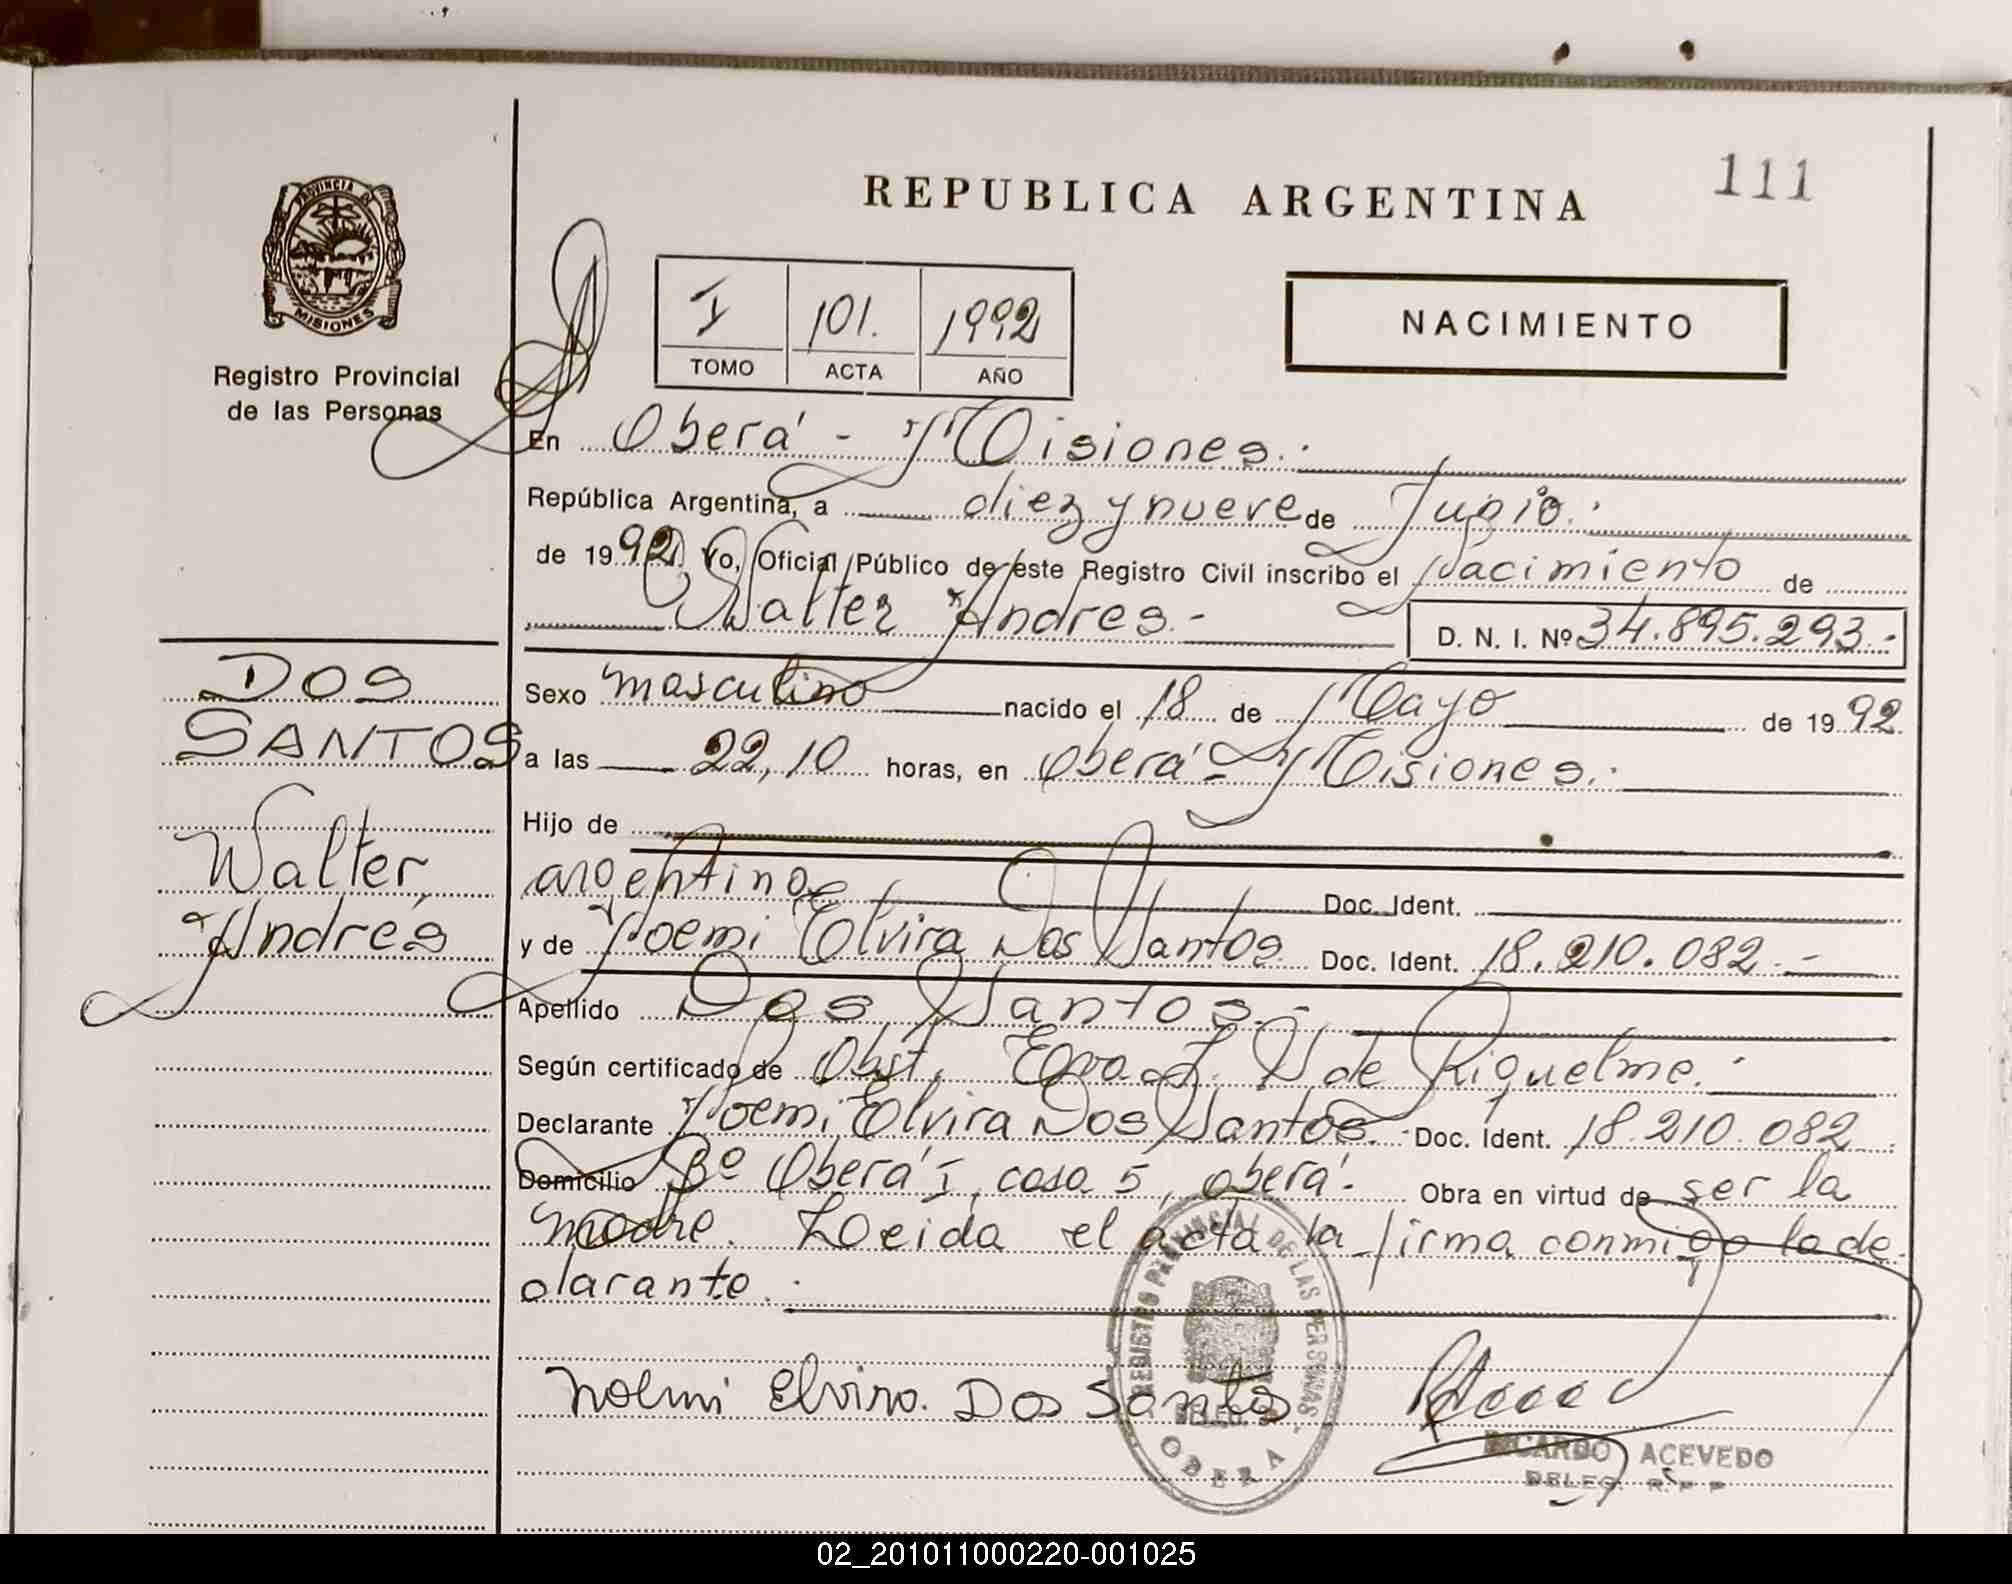 REPUBLICA ARGENTINA
111
PROVINCIA DE
MISIONES
Registro Provincial
de las Personas
I 101. 1992
TOMO ACTA AÑO
NACIMIENTO
En Oberá - Misiones.
República Argentina, a diez y nueve de Junio.
de 1992. Yo, Oficial Público de este Registro Civil inscribo el Nacimiento de
Walter Andres.- D. N. I. Nº 34.895.293.-
DOS
SANTOS
Walter
Andrés
Sexo masculino nacido el 18 de Mayo de 1992.
a las 22,10 horas, en Oberá - Misiones.
Hijo de
argentina Doc. Ident.
y de Noemi Elvira Dos Santos Doc. Ident. 18.210.082.-
Apellido Dos Santos.-
Según certificado de Obst. de Riquelme.
Declarante Noemi Elvira Dos Santos. Doc. Ident. 18.210.082
Domicilio Bº Oberá I, casa 5, Oberá. Obra en virtud de ser la
madre. Leida el acta la firma conmigo la de-
clarante.
Noemi Elvira Dos Santos
REGISTRO PROVINCIAL DE LAS PERSONAS
DELEG.
OBERA
RICARDO ACEVEDO
DELEG. R. P. P.
02_201011000220-001025